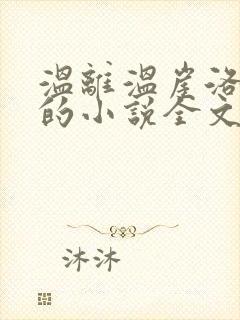 溫離溫崖洛
的小說全文
沐沐